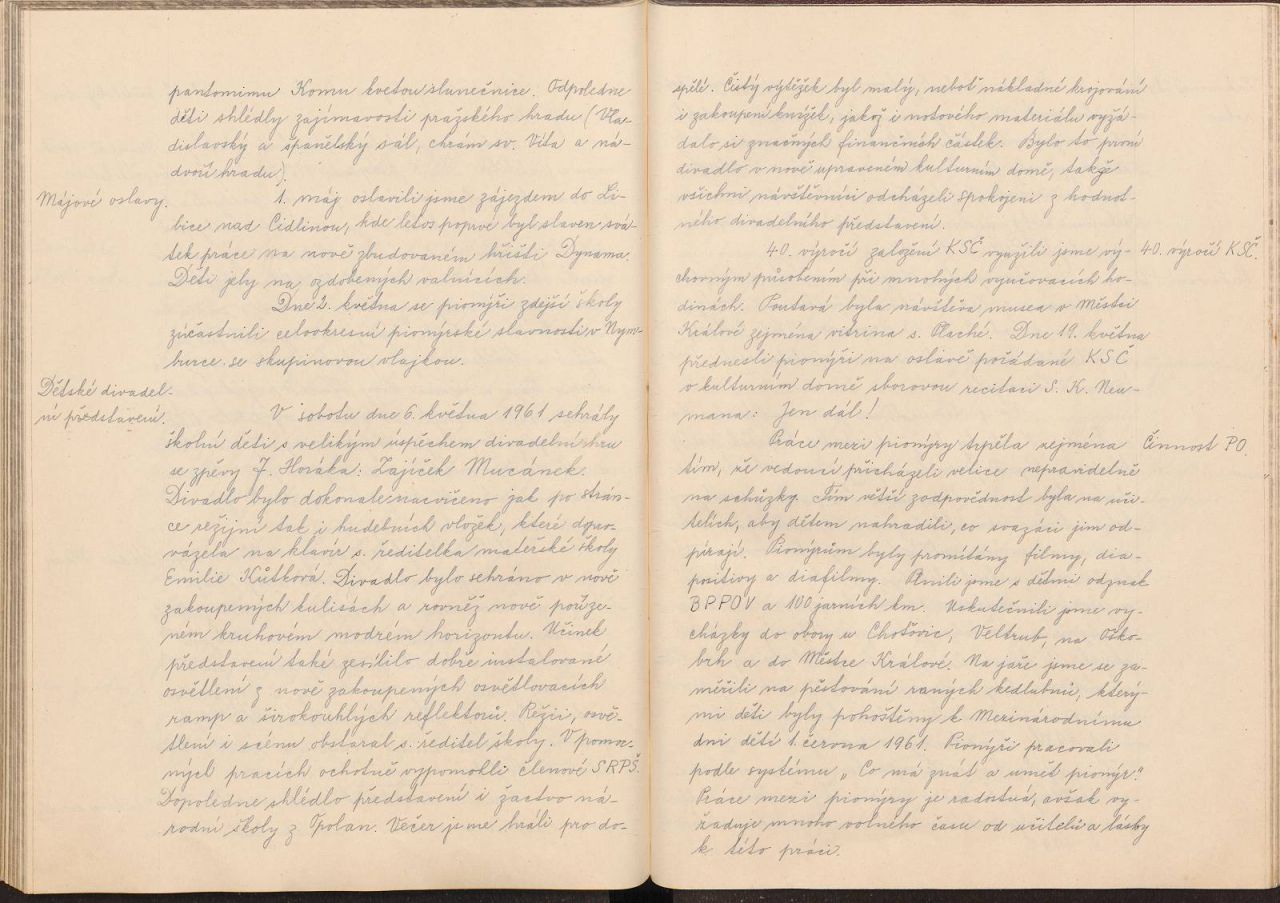 pantomimu Komu kvetou slunečnice. Odpoledne
děti shlédly zajímavosti pražského hradu (Vla-
dislavský a španělský sál, chrám sv. Víta a ná-
dvoří hradu).
Májové oslavy.
1. máj oslavili jsme zájezdem do Li-
bice nad Cidlinou, kde letos poprvé byl slaven svá-
tek práce na nově zbudovaném hřišti Dynama.
Děti jely na ozdobených valnících.
Dne 2. května se pionýři zdejší školy
zúčastnili celookresní pionýrské slavnosti v Nym-
burce se skupinovou vlajkou.
Dětské divadel-
ní představení.
V sobotu dne 6. května 1961 sehrály
školní děti s velikým úspěchem divadelní hru
se zpěvy F. Horáka: Zajíček Mucánek.
Divadlo bylo dokonale nacvičeno jak po strán-
ce režijní tak i hudebních vložek, které dopro-
vázela na klavír s. ředitelka mateřské školy
Emilie Kůtková. Divadlo bylo sehráno v nově
zakoupených kulisách a rovněž nově poříze-
ném kruhovém modrém horizontu. Účinek
představení také zesílilo dobře instalované
osvětlení z nově zakoupených osvětlovacích
ramp a širokouhlých reflektorů. Režii, osvě-
tlení i scénu obstaral s. ředitel školy. V pomoc-
ných pracích ochotně vypomohli členové SRPŠ.
Dopoledne shlédlo představení i žactvo ná-
rodní školy z Opolan. Večer jsme hráli pro do-
spělé. Čistý výtěžek byl malý, neboť nákladné krojování
i zakoupení knížek, jakož i notového materiálu vyžá-
dalo si značných finančních částek. Bylo to první
divadlo v nově upraveném kulturním domě, takže
všichni návštěvníci odcházeli spokojeni z hodnot-
ného divadelního představení.
40. výročí založení KSČ využili jsme vý-
40. výročí KSČ.
chovným působením při mnohých vyučovacích ho-
dinách. Poutavá byla návštěva musea v Městci
Králové zejména vitrina s. Plaché. Dne 19. května
přednesli pionýři na oslavě pořádané KSČ
v kulturním domě sborovou recitaci S. K. Neu-
mana: Jen dál!
Práce mezi pionýry trpěla zejména
Činnost PO.
tím, že vedoucí přicházeli velice nepravidelně
na schůzky. Tím větší zodpovědnost byla na uči-
telích, aby dětem nahradili, co svazáci jim od-
pírají. Pionýrům byly promítány filmy, dia-
positivy a diafilmy. Plnili jsme s dětmi odznak
BPPOV a 100 jarních km. Uskutečnili jsme vy-
cházky do obory u Choťovic, Veltrub, na Oško-
brh a do Městce Králové. Na jaře jsme se za-
měřili na pěstování raných kedlubnů, který-
mi děti byly pohoštěny k Mezinárodnímu
dni dětí 1. června 1961. Pionýři pracovali
podle systému „Co má znát a umět pionýr."
Práce mezi pionýry je radostná, avšak vy-
žaduje mnoho volného času od učitelů a lásky
k této práci.